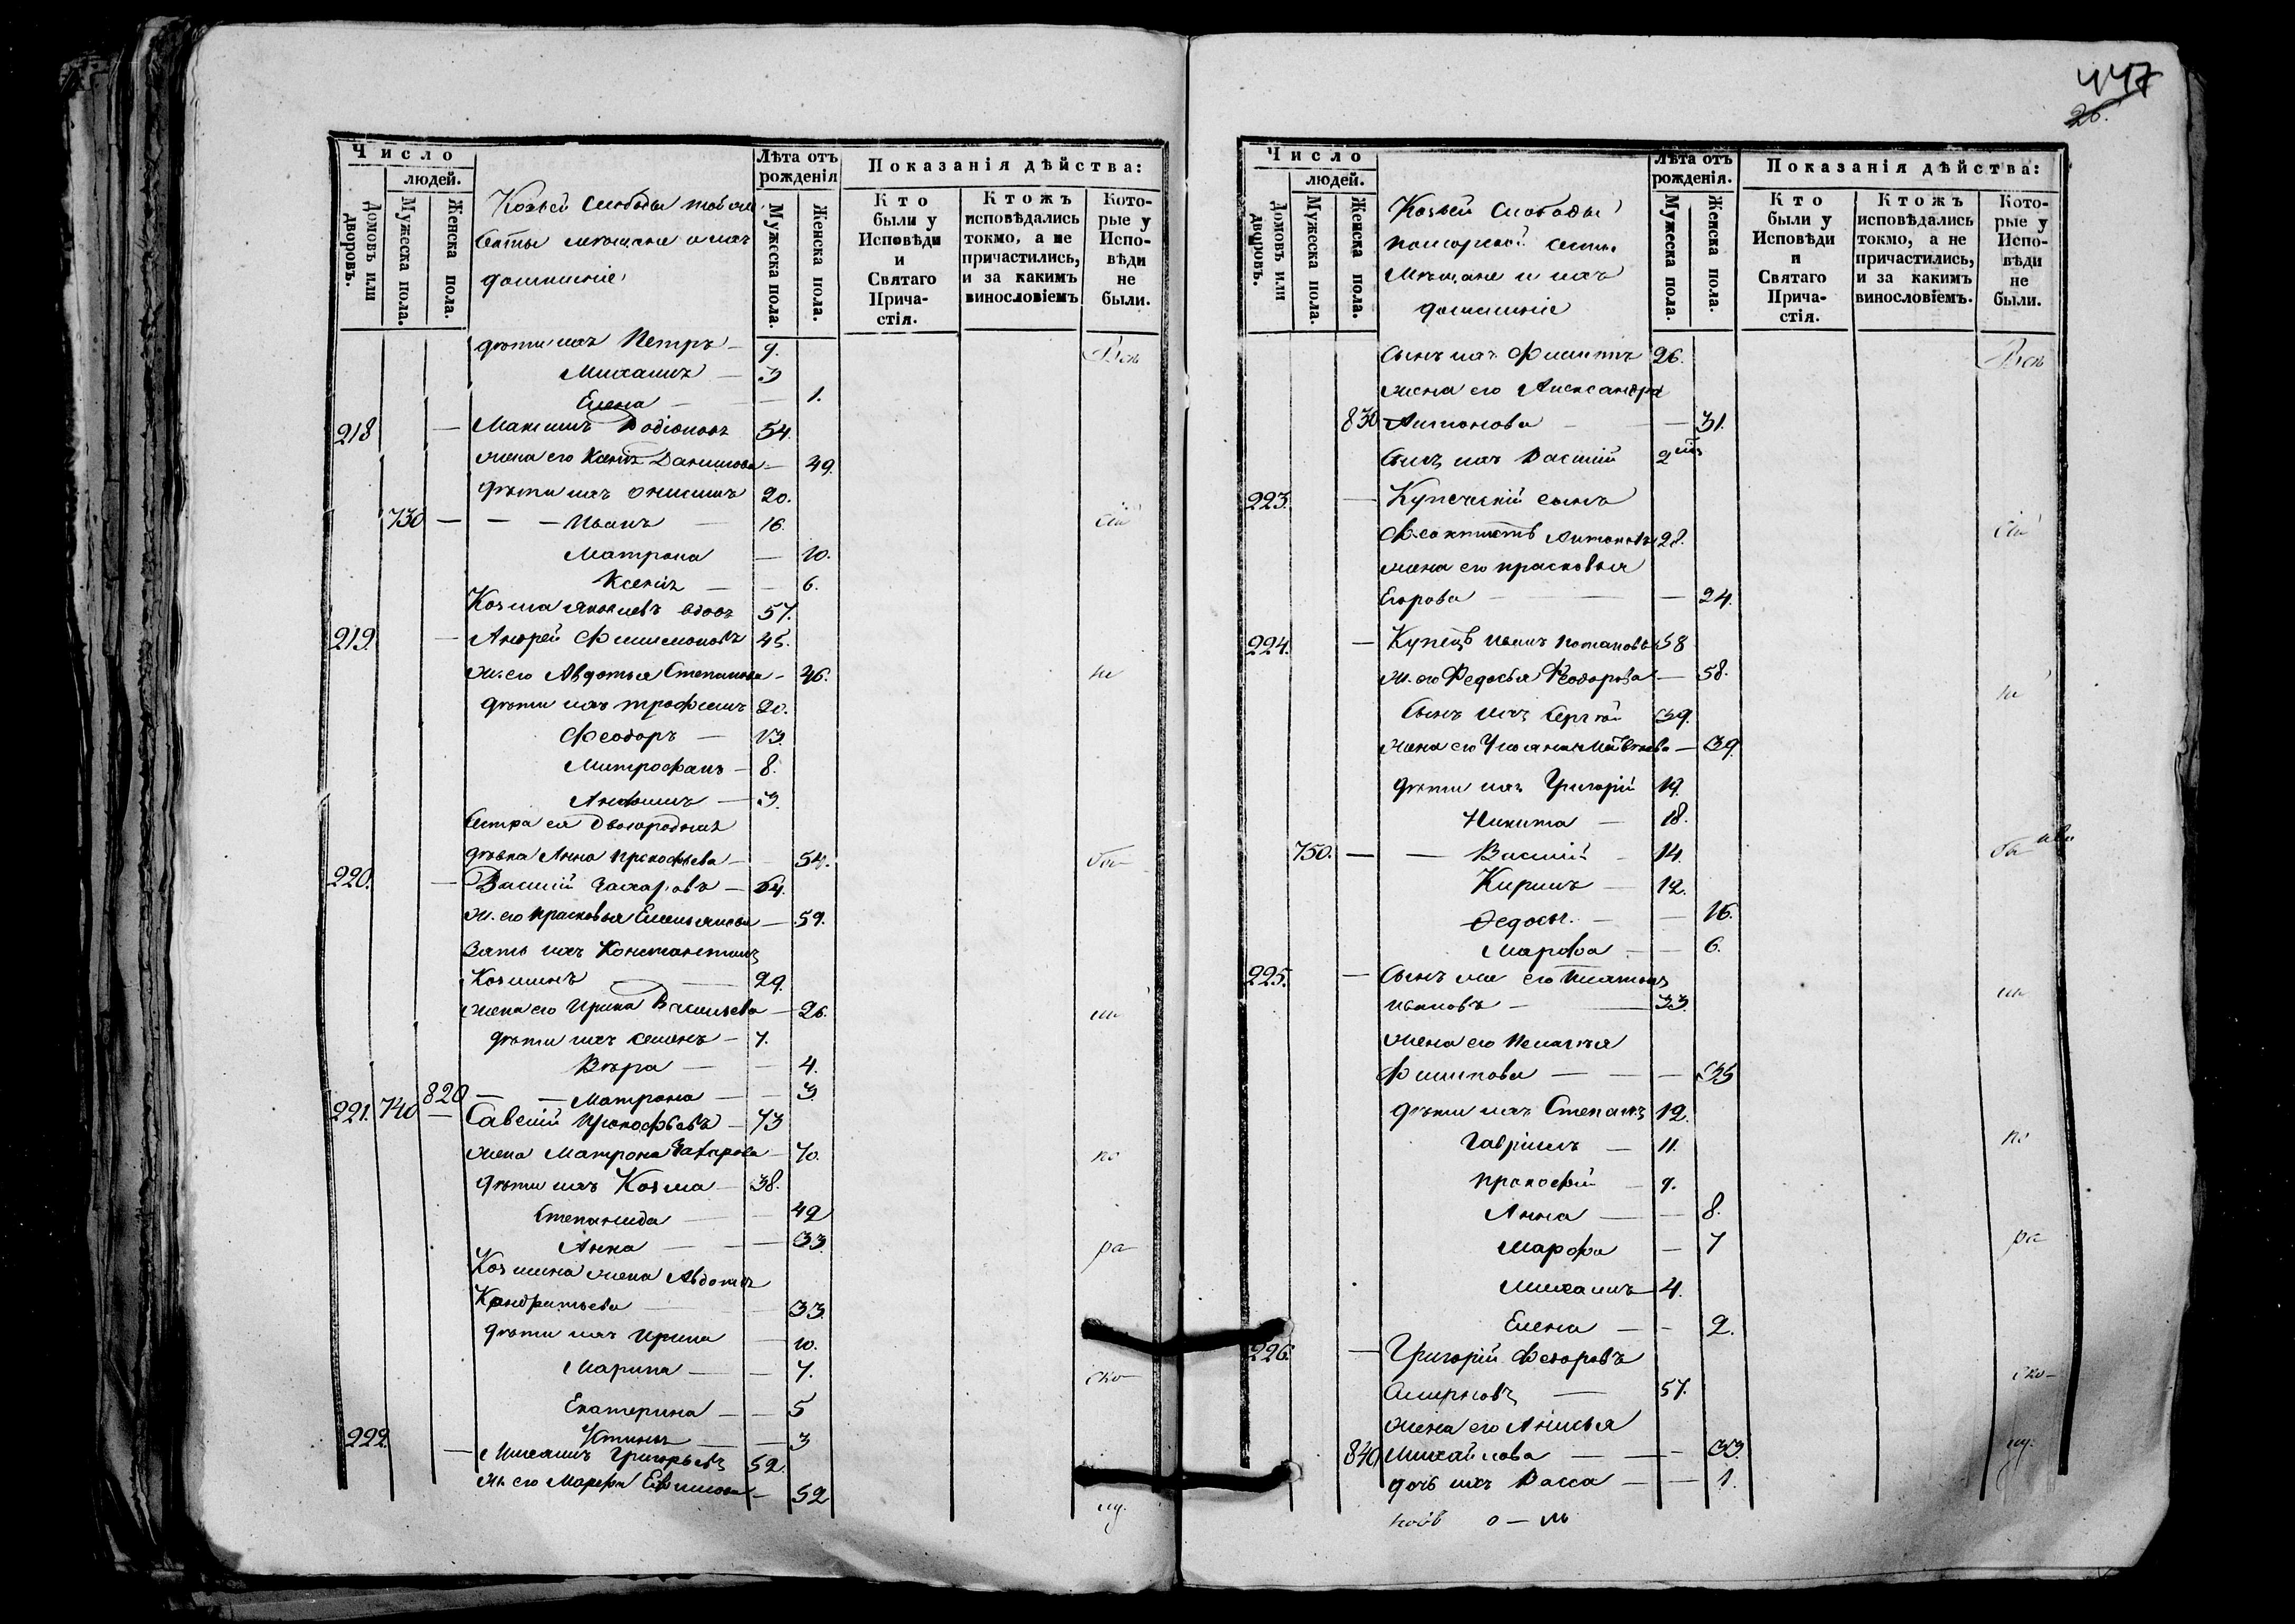 447
26.
Число
людей.
Домовъ или дворовъ.
Мужеска пола.
Женска пола.
Лѣта отъ рожденія
Мужеска пола.
Женска пола.
Показанія дѣйства:
Кто были у Исповѣди и Святаго Причастія.
Ктожъ исповѣдались токмо, а не причастились, и за какимъ винословіемъ
Которые у Исповѣди не были.
Козьей Слободы той же
секты мѣщане и ихъ
домашніе
дѣти ихъ Петръ — 9. Всѣ
Михаилъ — 3
Елена — 1.
218 — Максимъ Родіоновъ 54.
жена его Ксенія Данилова — 49.
дѣти ихъ Онисимъ 20.
730 — Иванъ 16. сіи
Матрона — 10.
Ксенія — 6.
Козма Яковлевъ вдовъ 57.
219. — Андрей Филимоновъ 45.
ж. его Авдотья Степанова — 46. не
дѣти ихъ Трофимъ 20.
Феодоръ — 13.
Митрофанъ — 8.
Анфимъ — 3.
Сестра ея двоюродная
дѣвка Анна Прокофьева — 54. бы
220. — Василій Захаровъ — 64.
ж. его Прасковья Емельянова — 59.
Зять ихъ Константинъ
Козминъ 29.
жена его Ирина Васильева — 26. ли
дѣти ихъ Семенъ — 7.
Вѣра — 4.
820 — Матрона — 3
221. 740 — Савелій Прокофьевъ — 73
жена Матрона Захарова — 70. по
дѣти ихъ Козма — 38.
Степанида — 42
Анна — 33. ра
Козмина жена Авдотья
Кондратьева — 33.
дѣти ихъ Ирина — 10.
Марина — 7. ско
Екатерина — 5
Устинья — 3
222. — Михаилъ Григорьевъ 52.
ж. его Марфа Ефимова — 52
лу.
Число
людей.
Домовъ или дворовъ.
Мужеска пола.
Женска пола.
Лѣта отъ рожденія.
Мужеска пола.
Женска пола.
Показанія дѣйства:
Кто были у Исповѣди и Святаго Причастія.
Ктожъ исповѣдались токмо, а не причастились, и за какимъ винословіемъ.
Которые у Исповѣди не были.
Козьей Слободы
поморской секты
Мѣщане и ихъ
домашніе
Сынъ ихъ Филиппъ 26. Всѣ
жена его Александра
830 Антонова — 31.
Сынъ ихъ Василій 2
223. — Купеческій сынъ
Феоктистъ Антоновъ 28. сіи
жена его Прасковья
Егорова — 24.
224. — Купецъ Иванъ Потаповъ 58
ж. его Федосья Феодорова — 58. не
Сынъ ихъ Сергѣй 39.
жена его Ульяна Матвѣева — 39.
дѣти ихъ Григорій 19.
Никита — 18.
750. — Василій 14. бы
Кирилъ — 12.
Федосья — 16.
Марфа — 6.
225. — Сынъ же его Платонъ
Ивановъ — 33. ли
жена его Пелагея
Филипова — 35
дѣти ихъ Степанъ 12.
Гавріилъ — 11. по
Прокофій — 9.
Анна — 8.
Марфа — 7 ра
Михаилъ 4.
Елена — 2.
226. — Григорій Федоровъ
Смирновъ — 57. ско
жена его Анисья
840 Михайлова — 33. лу.
дочь ихъ Васса — 1.